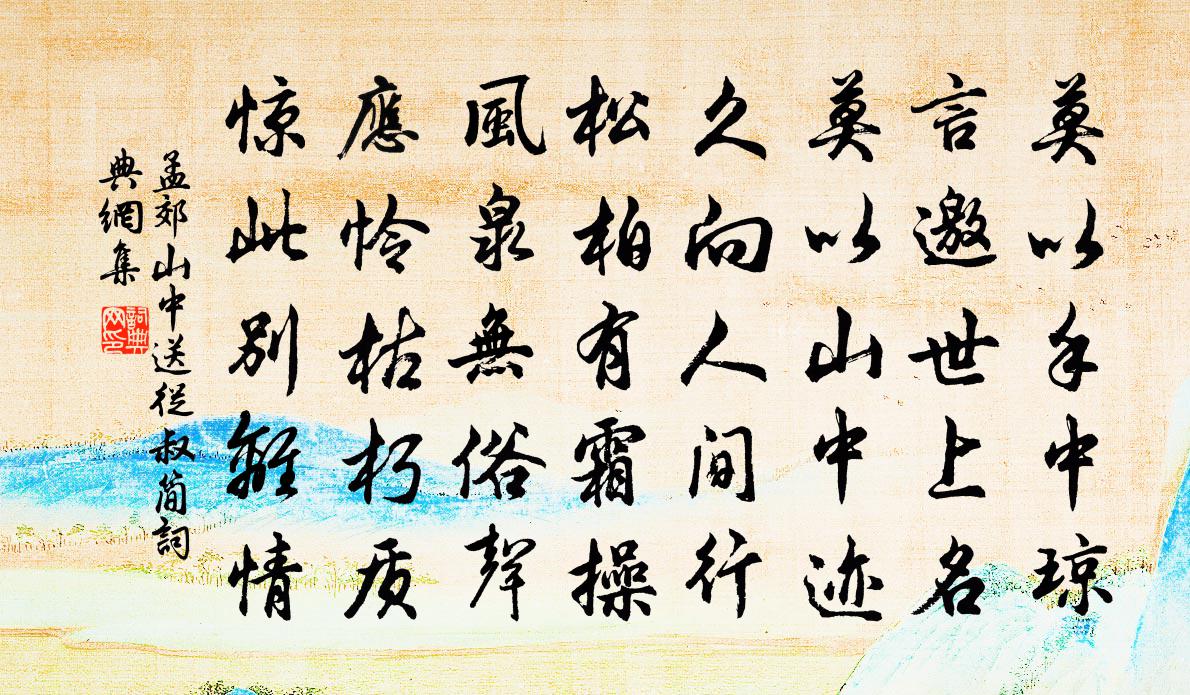 莫以手中琼
言邀世上名
莫以山中迹
久向人间行
松柏有霜操
風泉無俗聲
應怜枯朽质
惊此别離情
孟郊山中送從叔简詞
典網集
詞典
网印